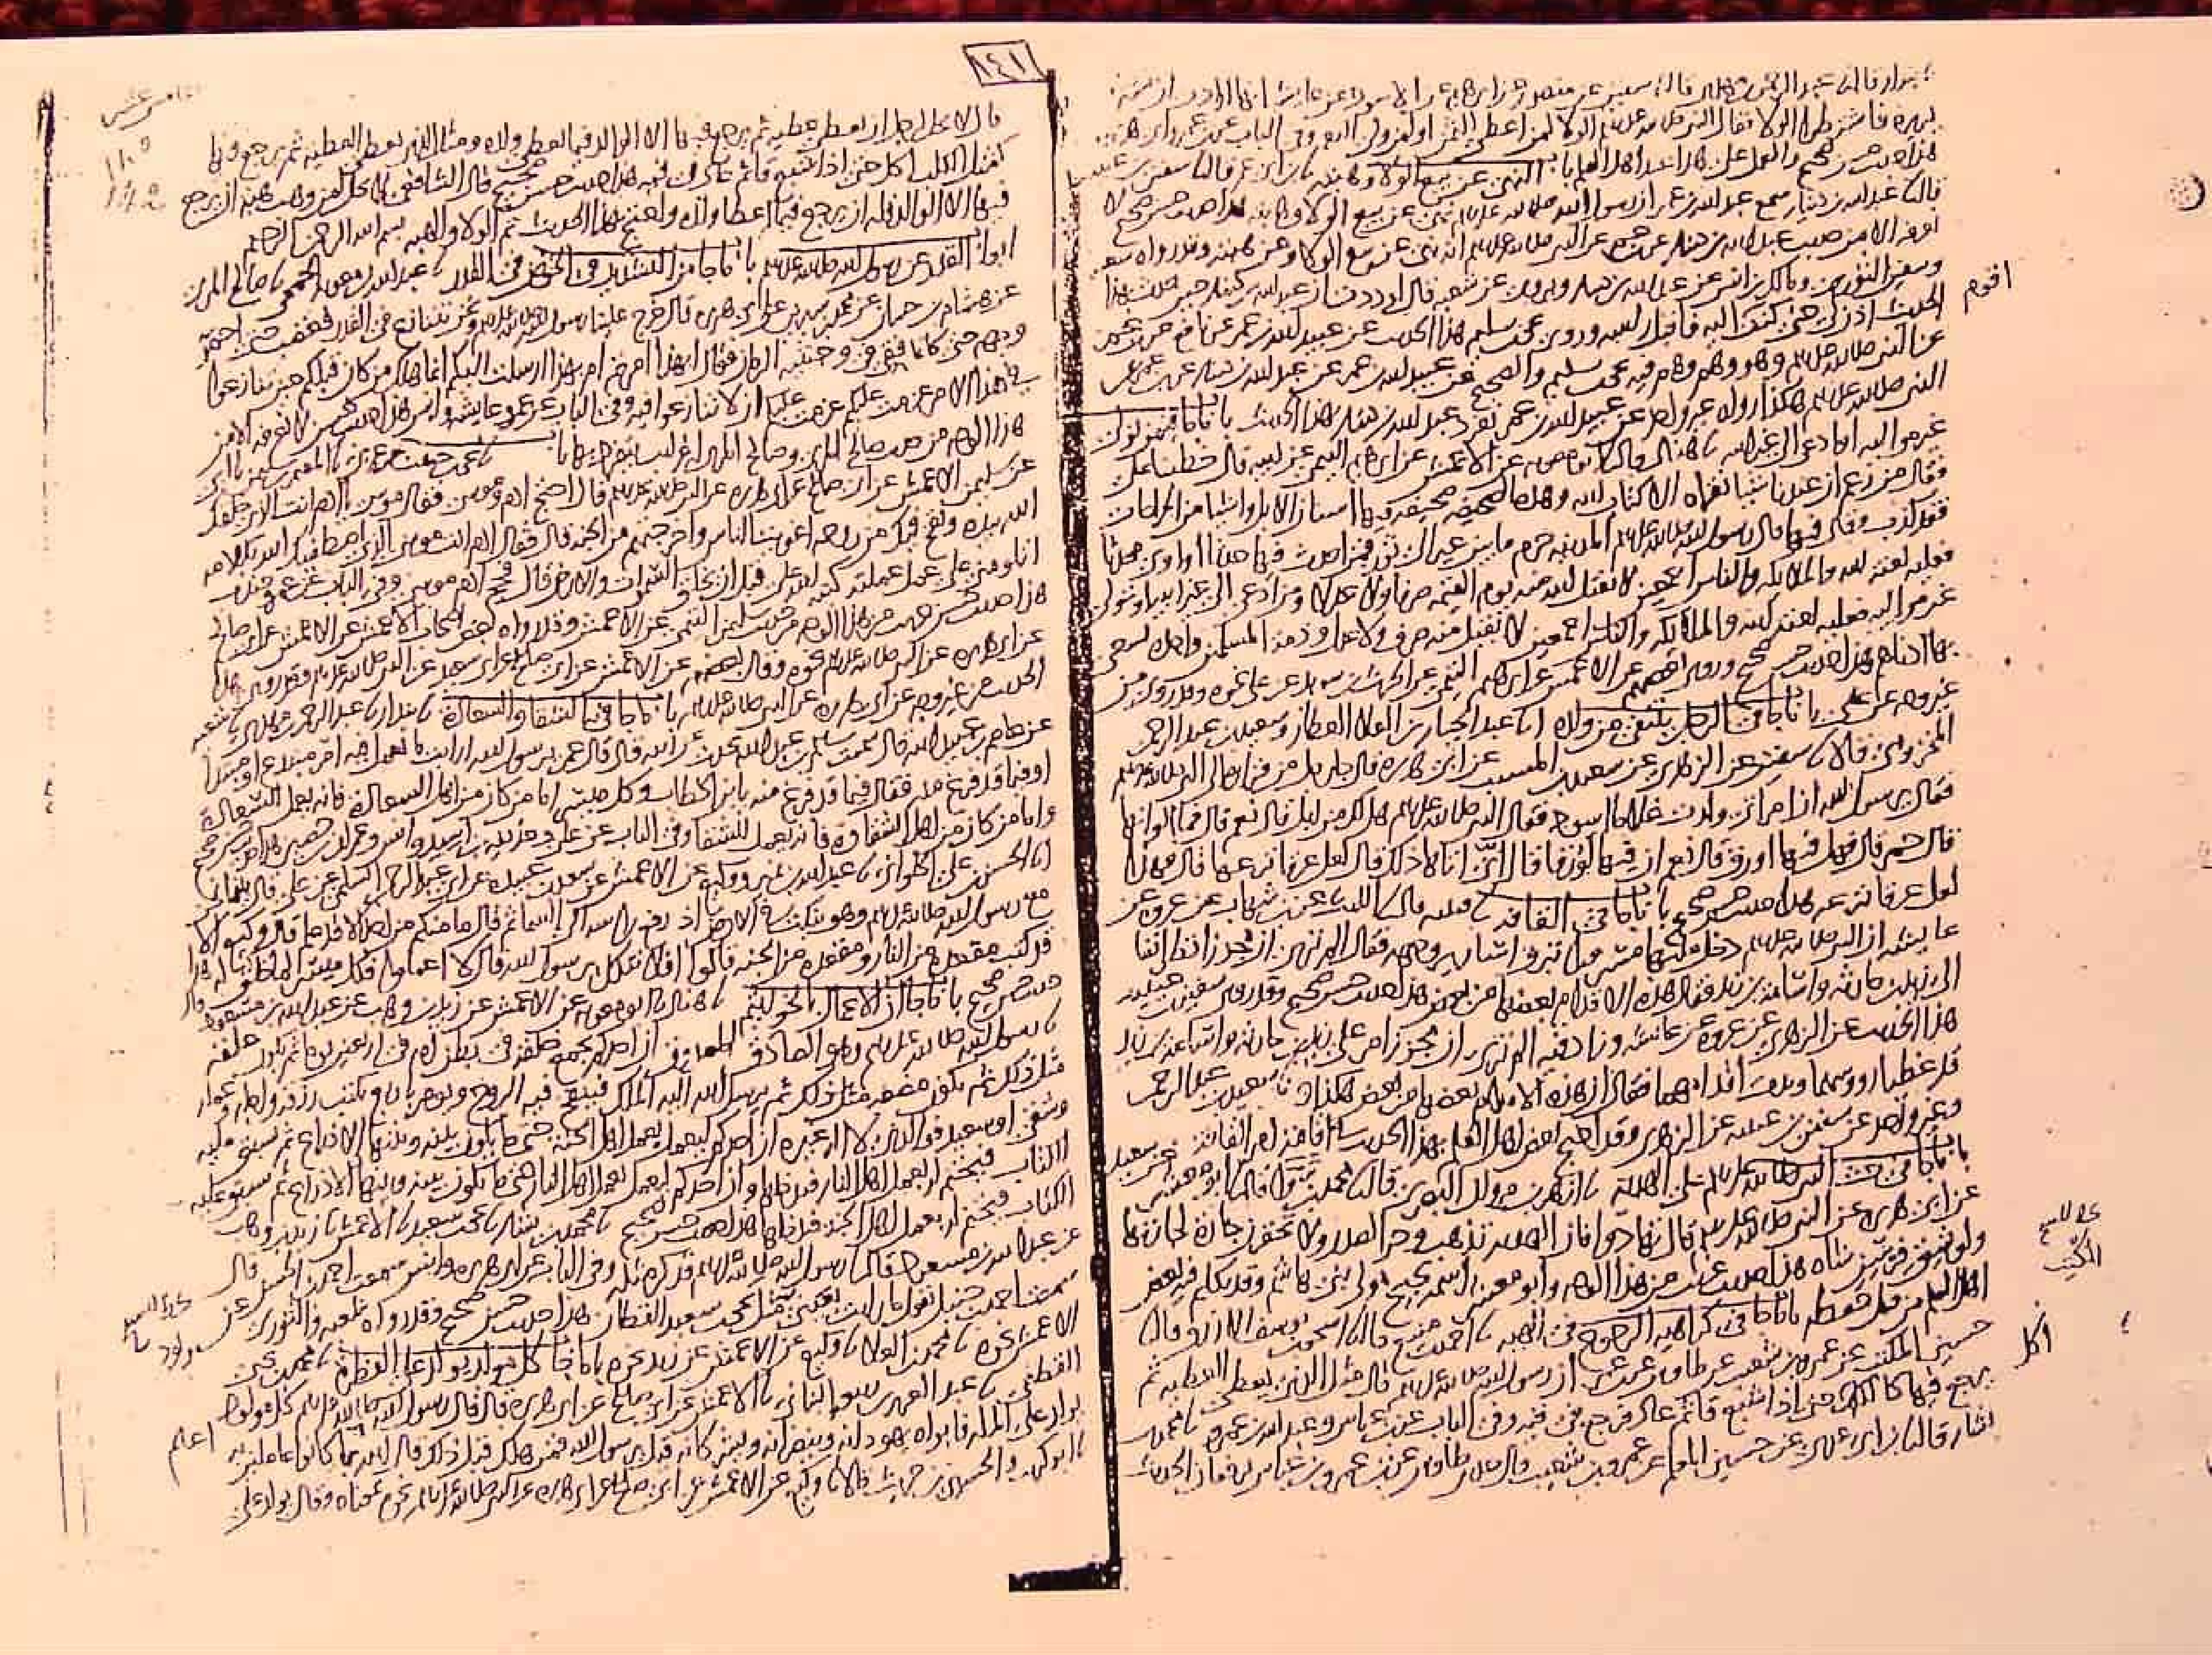 قال ثنا عبد الرحمن بن مهدي قال ثنا سفين عن منصور عن ابرهيم عن الاسود عن عايشه انها ارادت ان تشتري
بريره فاشترطوا الولا فقال النبي صلى الله عليه وسلم الولا لمن اعطى الثمن او لمن ولي النعمه وفي الباب عن ابن عمر وابي هريره
هذا حديث حسن صحيح والعمل على هذا عند اهل العلم باب النهي عن بيع الولا وهبته ثنا ابن ابي عمر قال ثنا سفين بن عيينه
قال ثنا عبد الله بن دينار سمع عبد الله بن عمر ان رسول الله صلى الله عليه وسلم نهى عن بيع الولا وهبته هذا حديث حسن صحيح لا
نعرفه الا من حديث عبد الله بن دينار عن ابن عمر عن النبي صلى الله عليه وسلم انه نهى عن بيع الولا وعن هبته وقد رواه شعبه
وسفين الثوري ومالك بن انس عن عبد الله بن دينار ويروى عن شعبه قال لوددت ان عبد الله بن دينار حين حدث بهذا
الحديث اذن لي حتى كنت اقوم اليه فاقبل راسه وروى يحيى بن سليم هذا الحديث عن عبيد الله بن عمر عن نافع عن ابن عمر
عن النبي صلى الله عليه وسلم وهو وهم وهم فيه يحيى بن سليم والصحيح عن عبيد الله بن عمر عن عبد الله بن دينار عن ابن عمر عن
النبي صلى الله عليه وسلم هكذا رواه غير واحد عن عبيد الله بن عمر تفرد عبد الله بن دينار بهذا الحديث باب ما جا فيمن تولى
غير مواليه او ادعى الى غير ابيه ثنا هناد قال ثنا ابو معويه عن الاعمش عن ابرهيم التيمي عن ابيه قال خطبنا علي
فقال من زعم ان عندنا شيا نقراه الا كتاب الله وهذه الصحيفه صحيفه فيها اسنان الابل واشيا من الجراحات
فقد كذب وقال فيها قال رسول الله صلى الله عليه وسلم المدينه حرم ما بين عير الى ثور فمن احدث فيها حدثا او اوى محدثا
فعليه لعنه الله والملايكه والناس اجمعين لا يقبل الله منه يوم القيمه صرفا ولا عدلا ومن ادعى الى غير ابيه او تولى
غير مواليه فعليه لعنه الله والملايكه والناس اجمعين لا يقبل منه صرف ولا عدل وذمه المسلمين واحده يسعى
بها ادناهم هذا حديث حسن صحيح وروى بعضهم عن الاعمش عن ابرهيم التيمي عن الحرث بن سويد عن علي نحوه وقد روي من
غير وجه عن علي باب ما جا في الرجل ينتفي من ولده ثنا عبد الجبار بن العلا العطار وسعيد بن عبد الرحمن
المخزومي قالا ثنا سفين عن الزهري عن سعيد بن المسيب عن ابي هريره قال جا رجل من فزاره الى النبي صلى الله عليه وسلم
فقال يرسول الله ان امراتي ولدت غلاما اسود فقال النبي صلى الله عليه وسلم هل لك من ابل قال نعم قال فما الوانها
قال حمر قال فهل فيها اورق قال نعم ان فيها لورقا قال انى اتاها ذلك قال لعل عرقا نزعها قال فهذا
لعل عرقا نزعه هذا حديث حسن صحيح باب ما جا في القافه ثنا قتيبه قال ثنا الليث عن ابن شهاب عن عروه عن
عايشه ان النبي صلى الله عليه وسلم دخل عليها مسرورا تبرق اسارير وجهه فقال الم تري ان مجززا نظر انفا
الى زيد بن حارثه واسامه بن زيد فقال هذه الاقدام بعضها من بعض هذا حديث حسن صحيح وقد روى سفين بن عيينه
هذا الحديث عن الزهري عن عروه عن عايشه وزاد فيه الم تري ان مجززا مر على زيد بن حارثه واسامه بن زيد
قد غطيا رووسهما وبدت اقدامهما فقال ان هذه الاقدام بعضها من بعض هكذا ثنا سعيد بن عبد الرحمن
وغير واحد عن سفين بن عيينه عن الزهري وقد احتج بعض اهل العلم بهذا الحديث في اقامه امر القافه
باب ما جا في حث النبي صلى الله عليه وسلم على الهديه ثنا ازهر بن مروان البصري قال ثنا محمد بن سوا قال ثنا ابو معشر عن سعيد
عن ابي هريره عن النبي صلى الله عليه وسلم قال تهادوا فان الهديه تذهب وحر الصدر ولا تحقرن جاره لجارتها
ولو شق فرسن شاه هذا حديث غريب من هذا الوجه وابو معشر اسمه نجيح مولى بني هاشم وقد تكلم فيه بعض
اهل العلم من قبل حفظه باب ما جا في كراهيه الرجوع في الهبه ثنا احمد بن منيع قال ثنا اسحق بن يوسف الازرق قال ثنا
حسين المكتب عن عمرو بن شعيب عن طاوس عن ابن عمر ان رسول الله صلى الله عليه وسلم قال مثل الذي يعطي العطيه ثم
يرجع فيها كالكلب اكل حتى اذا شبع قا ثم عاد فرجع في قيه وفي الباب عن ابن عباس وعبد الله بن عمرو ثنا محمد بن
بشار قال ثنا ابن ابي عدي عن حسين المعلم عن عمرو بن شعيب قال حدثني طاوس عن ابن عمر وابن عباس يرفعان الحديث
اقوم
المكتب
اكل
١٤١
قال لا يحل لرجل ان يعطي عطيه ثم يرجع فيها الا الوالد فيما يعطي ولده ومثل الذي يعطي العطيه ثم يرجع فيها
كمثل الكلب اكل حتى اذا شبع قا ثم عاد في قيه هذا حديث حسن صحيح قال الشافعي لا يحل لمن وهب هبه ان يرجع
فيها الا الوالد فله ان يرجع فيما اعطا ولده واحتج بهذا الحديث تم الولا والهبه بسم الله الرحمن الرحيم
ابواب القدر عن رسول الله صلى الله عليه وسلم باب ما جا من التشديد في الخوض في القدر ثنا عبد الله بن معويه الجمحي ثنا صالح المري
عن هشام بن حسان عن محمد بن سيرين عن ابي هريره قال خرج علينا رسول الله صلى الله عليه وسلم ونحن نتنازع في القدر فغضب حتى احمر
وجهه حتى كانما فقي في وجنتيه الرمان فقال ابهذا امرتم ام بهذا ارسلت اليكم انما هلك من كان قبلكم حين تنازعوا
في هذا الامر عزمت عليكم عزمت عليكم ان لا تنازعوا فيه وفي الباب عن عمر وعايشه وانس هذا حديث غريب لا نعرفه الا من
هذا الوجه من حديث صالح المري وصالح المري له غرايب يتفرد بها باب ثنا يحيى بن حبيب بن عربي ثنا المعتمر بن سليمن ثنا ابي
عن سليمن الاعمش عن ابي صالح عن ابي هريره عن النبي صلى الله عليه وسلم قال احتج ادم وموسى فقال موسى يا ادم انت الذي خلقك
الله بيده ونفخ فيك من روحه اغويت الناس واخرجتهم من الجنه قال فقال ادم انت موسى الذي اصطفاك الله بكلامه
اتلومني على عمل عملته كتبه الله علي قبل ان يخلق السموات والارض قال فحج ادم موسى وفي الباب عن عمر وجندب
هذا حديث حسن غريب من هذا الوجه من حديث سليمن التيمي عن الاعمش وقد رواه بعض اصحاب الاعمش عن الاعمش عن ابي صالح
عن ابي هريره عن النبي صلى الله عليه وسلم نحوه وقال بعضهم عن الاعمش عن ابي صالح عن ابي سعيد عن النبي صلى الله عليه وسلم وقد روي هذا
الحديث من غير وجه عن ابي هريره عن النبي صلى الله عليه وسلم باب ما جا في الشقا والسعاده ثنا بندار ثنا عبد الرحمن بن مهدي ثنا شعبه
عن عاصم بن عبيد الله قال سمعت سالم بن عبد الله يحدث عن ابيه قال قال عمر يرسول الله ارايت ما نعمل فيه امر مبتدع او مبتدا
او فيما قد فرغ منه فقال فيما قد فرغ منه يا ابن الخطاب وكل ميسر اما من كان من اهل السعاده فانه يعمل للسعاده
واما من كان من اهل الشقاوه فانه يعمل للشقا وفي الباب عن علي وحذيفه بن اسيد وانس وعمران بن حصين هذا حديث حسن صحيح
ثنا الحسن بن علي الحلواني ثنا عبد الله بن نمير ووكيع عن الاعمش عن سعد بن عبيده عن ابي عبد الرحمن السلمي عن علي قال بينما نحن
مع رسول الله صلى الله عليه وسلم وهو ينكت في الارض اذ رفع راسه الى السما ثم قال ما منكم من احد الا قد علم قال وكيع الا
قد كتب مقعده من النار ومقعده من الجنه قالوا افلا نتكل يرسول الله قال لا اعملوا فكل ميسر لما خلق له هذا
حديث حسن صحيح باب ما جا ان الاعمال بالخواتيم ثنا هناد ثنا ابو معويه عن الاعمش عن زيد بن وهب عن عبد الله بن مسعود قال
ثنا رسول الله صلى الله عليه وسلم وهو الصادق المصدوق ان احدكم يجمع خلقه في بطن امه في اربعين يوما ثم يكون علقه
مثل ذلك ثم يكون مضغه مثل ذلك ثم يرسل الله اليه الملك فينفخ فيه الروح ويومر باربع يكتب رزقه واجله وعمله
وشقي او سعيد فوالذي لا اله غيره ان احدكم ليعمل بعمل اهل الجنه حتى ما يكون بينه وبينها الا ذراع ثم يسبق عليه
الكتاب فيختم له بعمل اهل النار فيدخلها وان احدكم ليعمل بعمل اهل النار حتى ما يكون بينه وبينها الا ذراع ثم يسبق عليه
الكتاب فيختم له بعمل اهل الجنه فيدخلها هذا حديث حسن صحيح ثنا محمد بن بشار ثنا يحيى بن سعيد ثنا الاعمش ثنا زيد بن وهب
عن عبد الله بن مسعود قال ثنا رسول الله صلى الله عليه وسلم فذكر مثله وفي الباب عن ابي هريره وانس سمعت احمد بن الحسن قال
سمعت احمد بن حنبل يقول ما رايت بعيني مثل يحيى بن سعيد القطان هذا حديث حسن صحيح وقد رواه شعبه والثوري عن
الاعمش نحوه ثنا محمد بن العلا ثنا وكيع عن الاعمش عن زيد نحوه باب ما جا كل مولود يولد على الفطره ثنا محمد بن يحيى
القطعي ثنا عبد العزيز بن ربيعه البناني ثنا الاعمش عن ابي صالح عن ابي هريره قال قال رسول الله صلى الله عليه وسلم كل مولود
يولد على المله فابواه يهودانه وينصرانه ويشركانه قيل يرسول الله فمن هلك قبل ذلك قال الله اعلم بما كانوا عاملين به
ثنا ابو كريب والحسين بن حريث قالا ثنا وكيع عن الاعمش عن ابي صالح عن ابي هريره عن النبي صلى الله عليه وسلم نحوه بمعناه وقال يولد على
اعلم
142